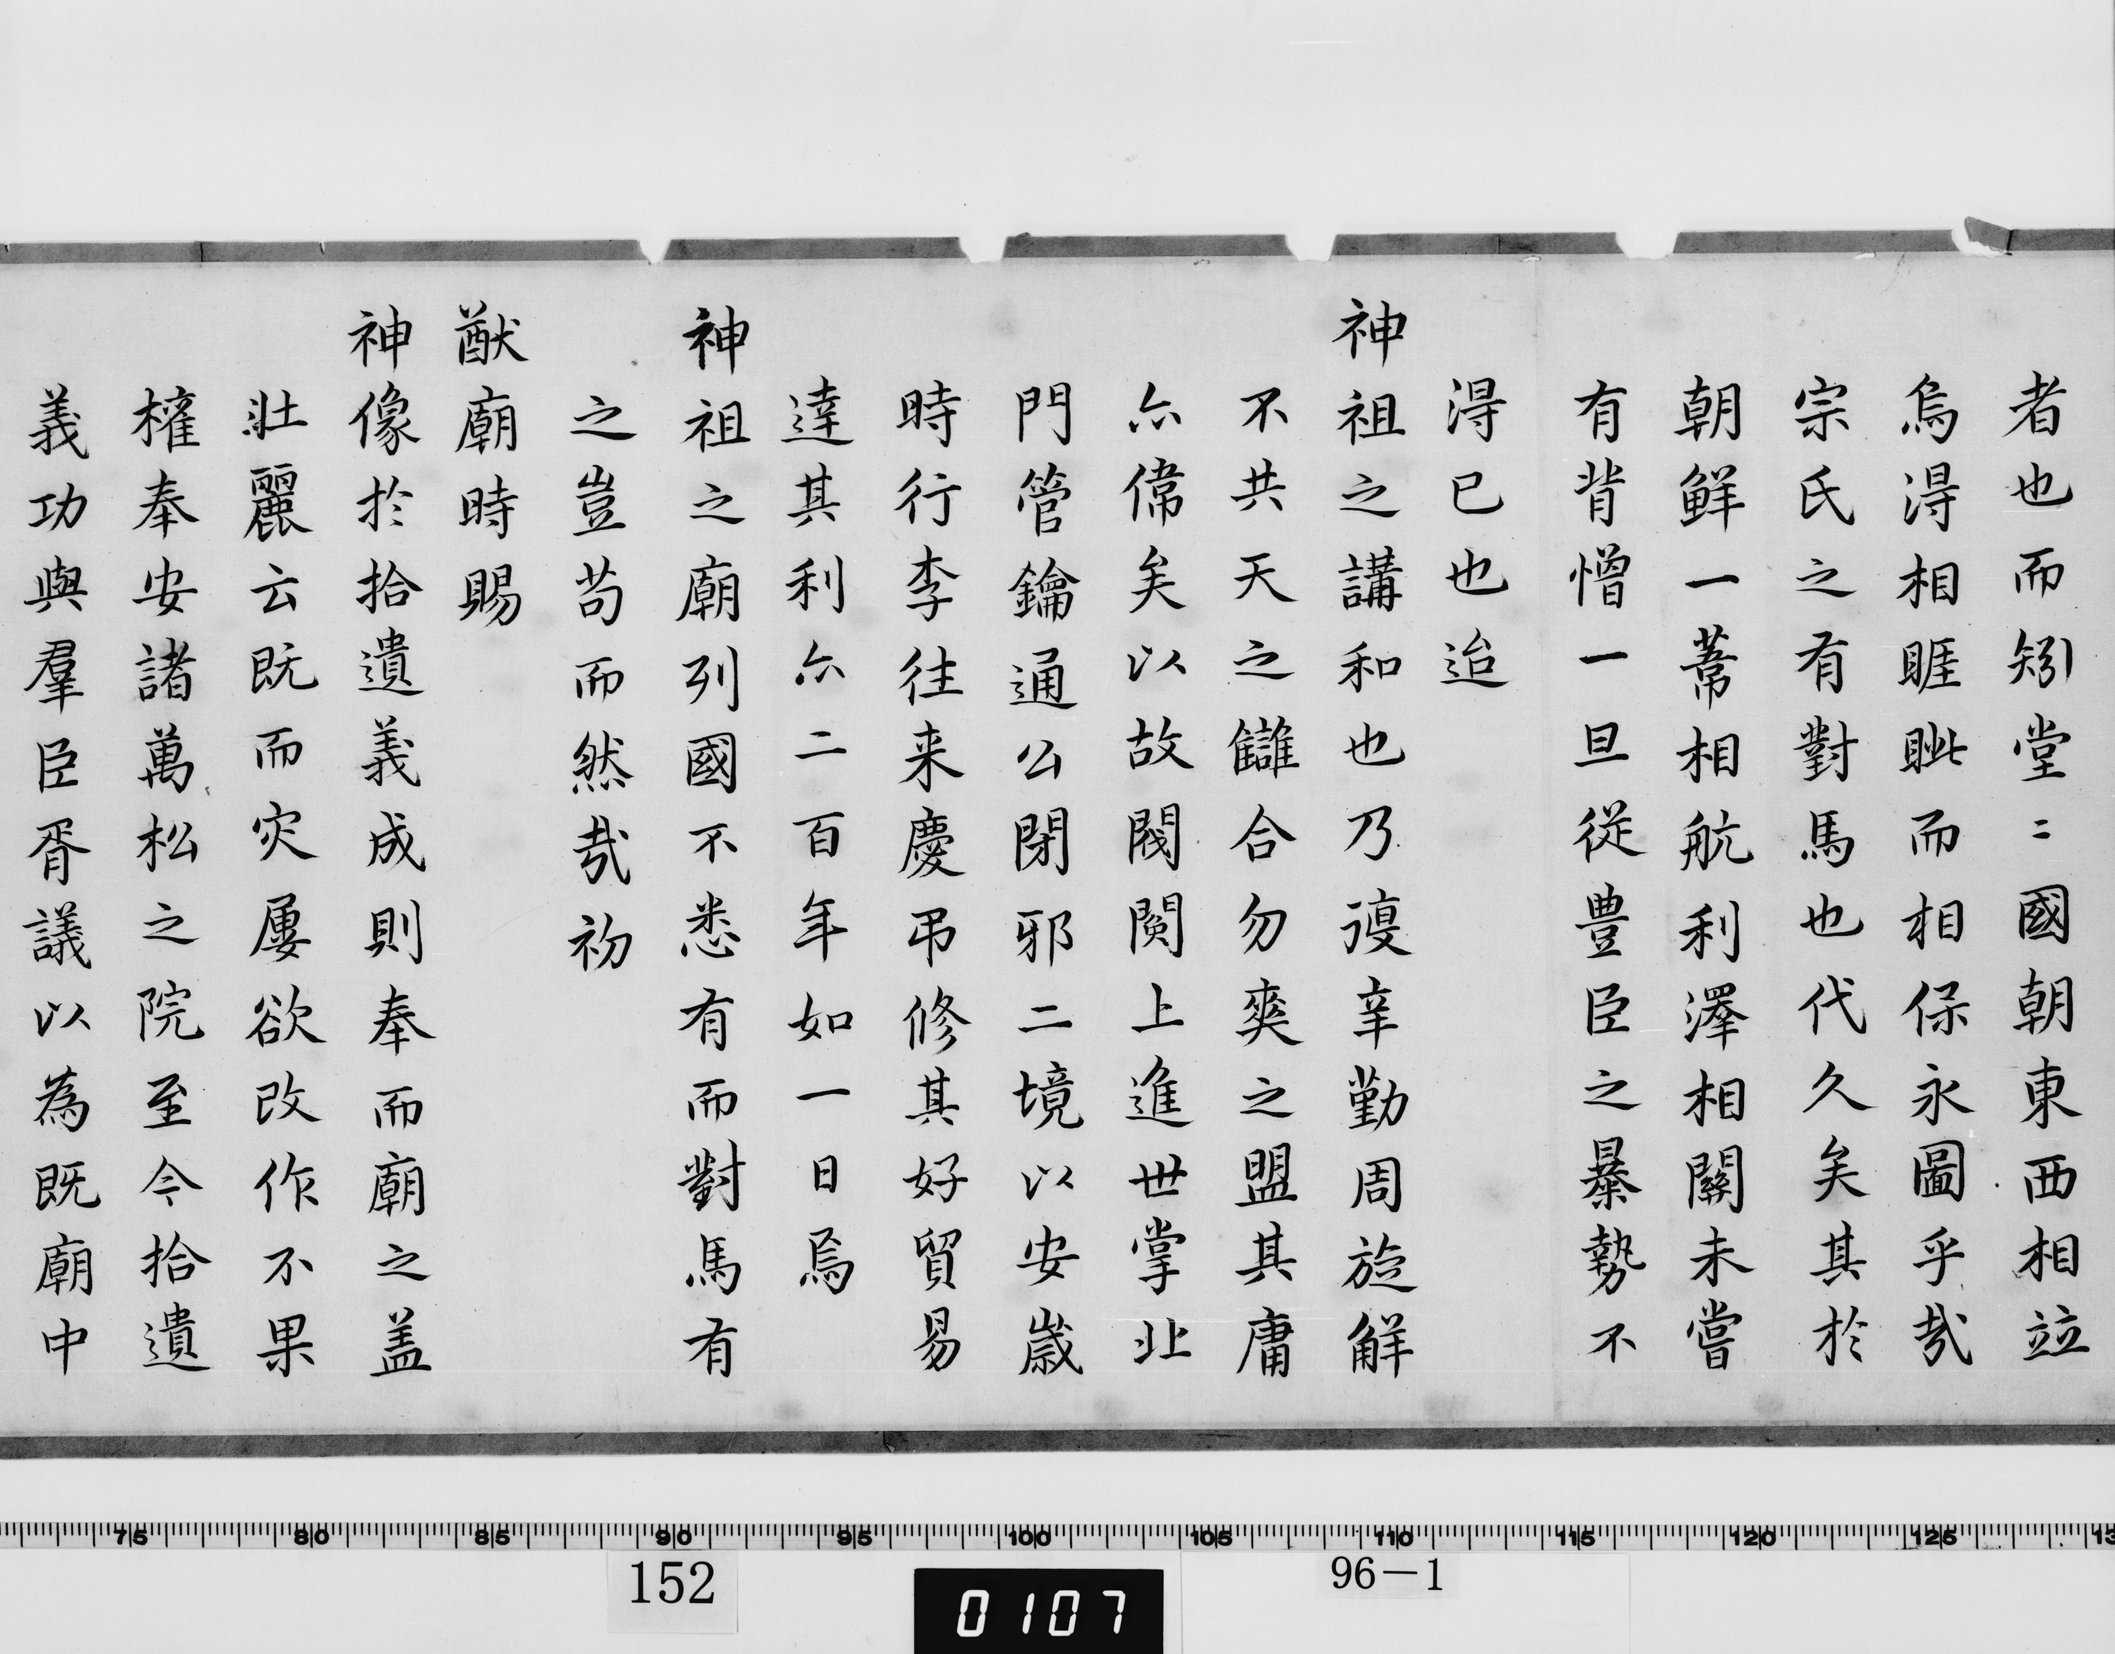 者也而矧堂〻國朝東西相竝
烏淂相睚眦而相保永圖乎㢤
宗氏之有對馬也代久矣其於
朝鮮一葦相航利澤相關未嘗
有背憎一旦從豊臣之暴勢不
淂已也迨
神祖之講和也乃謏辛勤周旋觧
不共天之讎合勿爽之盟其庸
亦偉矣以故閥閲上進世掌北
門管鑰通公閉邪二境以安歳
時行李往来慶弔修其好貿易
達其利亦二百年如一日焉
神祖之廟列國不悉有而對馬有
之豈苟而然㢤初
猷廟時賜
神像於拾遺義成則奉而廟之盖
壯麗云既而灾屢欲改作不果
権奉安諸萬松之院至今拾遺
義功與羣臣胥議以為既廟中
75 80 85 90 95 100 105 110 115 120 125 13
152
96-1
0107